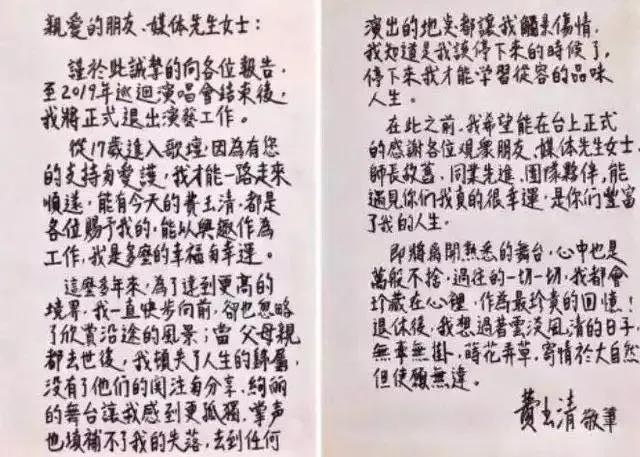 親愛的朋友、媒体先生女士：
謹於此誠摯的向各位報告，
至2019年巡迴演唱會結束後，
我將正式退出演藝工作。
從17歲進入歌壇，因為有您
的支持与愛護，我才能一路走來
順遂，能有今天的費玉清，都是
各位賜予我的，能以興趣作為
工作，我是多麼的幸福与幸運。
這麼多年來，為了達到更高的
境界，我一直快步向前，卻也忽略
了欣賞沿途的風景；當父母親
都去世後，我頓失了人生的歸屬，
沒有了他們的関注与分享，絢麗
的舞台讓我感到更孤獨，掌声
也填補不了我的失落，去到任何
演出的地点都讓我觸景傷情，
我知道是我該停下來的時候了，
停下來我才能学習從容的品味
人生。
在此之前，我希望能在台上正式
的感謝各位观衆朋友、媒体先生女士、
師長故舊、同業先進、团隊夥伴，能
遇見你們我真的很幸運，是你們豐富
了我的人生。
即將離開熟悉的舞台，心中也是
萬般不捨，過往的一切一切，我都會
珍藏在心裡，作為最珍貴的回憶！
退休後，我想過著雲淡風清的日子，
無牽無掛，蒔花弄草，寄情於大自然
但使願無違。
費玉清 敬筆